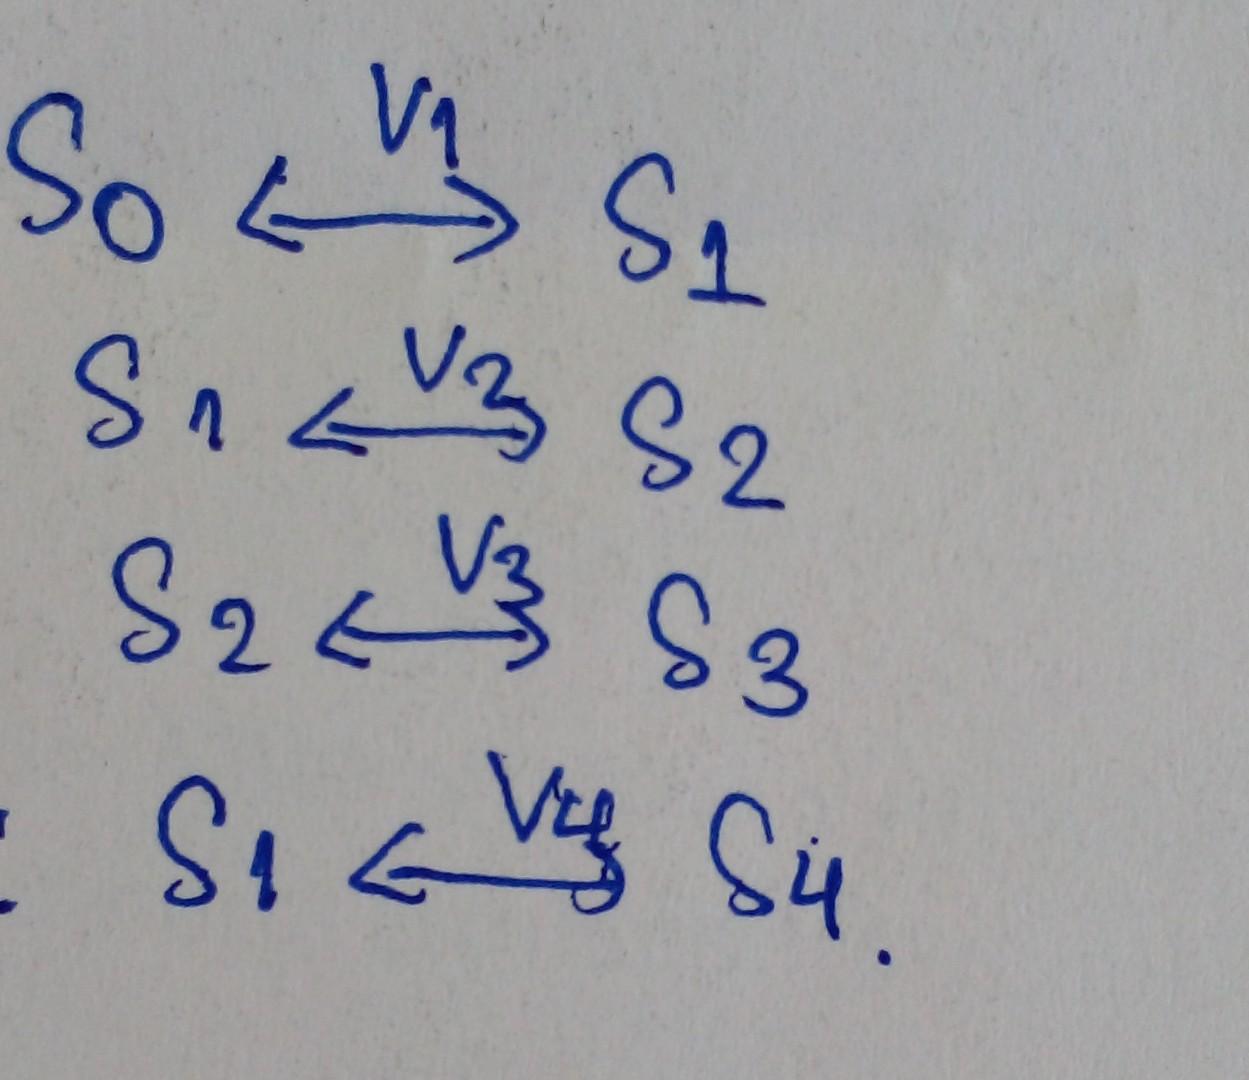 S0 <-V1-> S1
S1 <-V2-> S2
S2 <-V3-> S3
S1 <-V4-> S4.